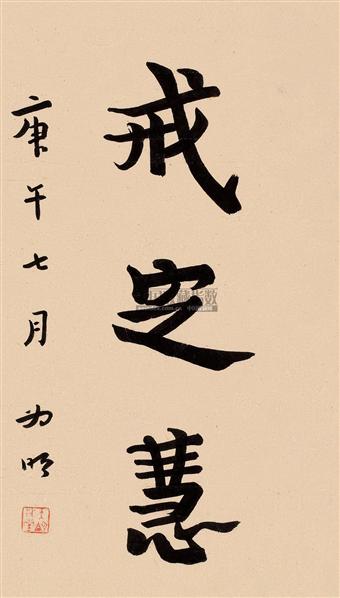 戒定慧
庚午七月 明